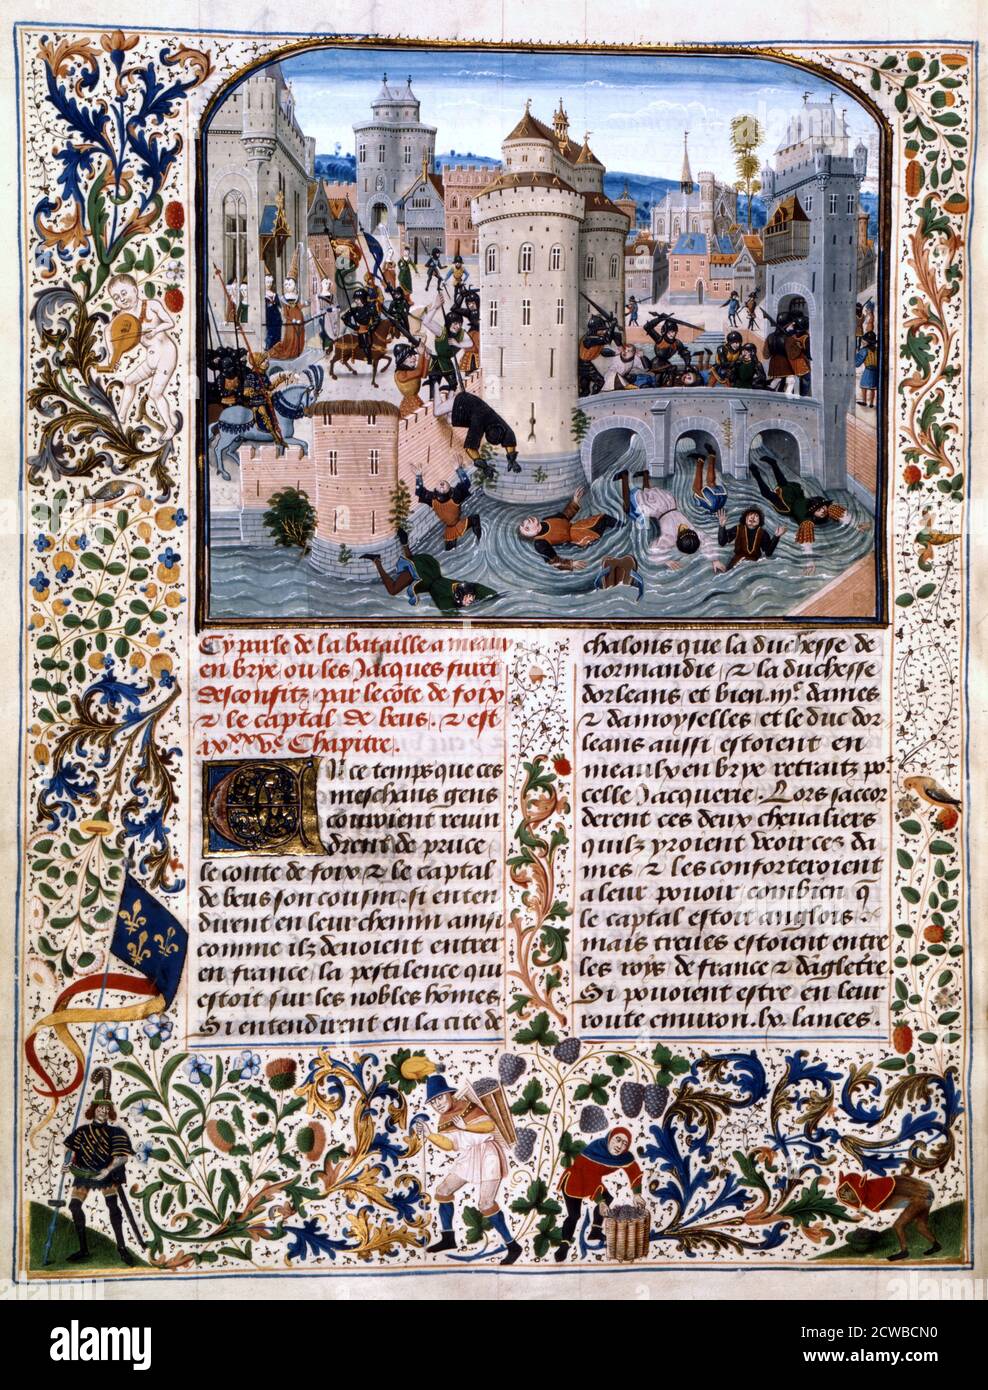 Cy parle de la bataille a meaux
en brye ou les Jacques furēt
desconfitz par le cōte de foix
⁊ le captal de beus. ⁊ est
ix^xx v^e Chapitre.
En ce temps que ces
meschans gens
couroient reuin
drent de pruce
le conte de foix ⁊ le captal
de beus son cousin. si enten
dirent en leur chemin ainsi
comme ilz deuoient entrer
en france la pestilence qui
estoit sur les nobles hōmes
Si entendirent en la cite de
chalons que la duchesse de
normandie ⁊ la duchesse
dorleans et bien .iii^c. dames
⁊ damoyselles et le duc dor
leans aussi estoient en
meaulx en brye retraitz po^r
celle Jacquerie. Lors saccor
derent ces deux cheualiers
quilz yroient veoir ces da
mes ⁊ les conforteroient
a leur pouoir combien q̄
le captal estoit anglois.
mais treues estoient entre
les roys de france ⁊ dāgletr̄e.
Si pouoient estre en leur
route enuiron .lx. lances.
alamy
Image ID: 2CWBCN0
www.alamy.com